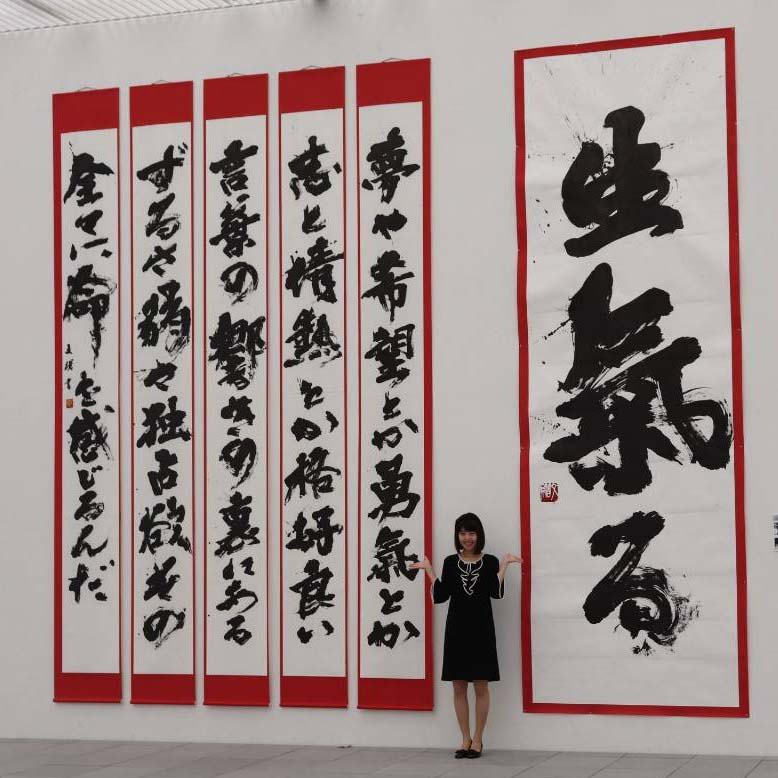 生氣る
夢や希望とか勇氣とか
志と情熱とか格好良い
言葉の響きの裏にある
ずるさ弱さ独占欲その
全てに命を感じるんだ